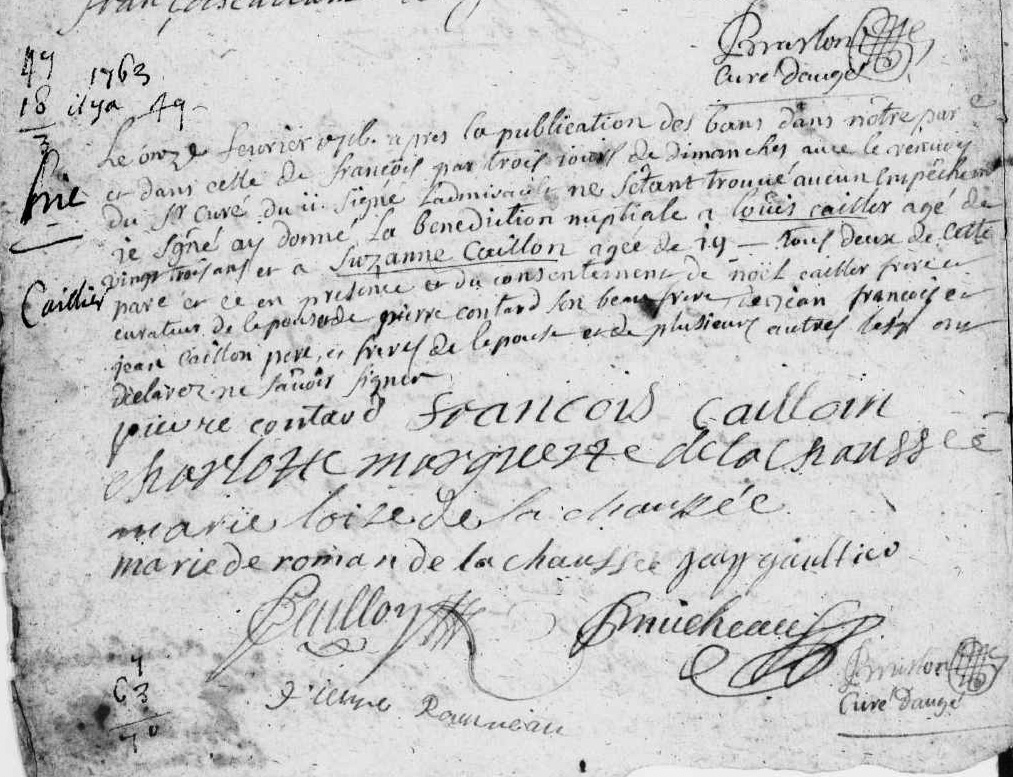 Bruslon
Curé d'augé
49 1763
18 il y a 49
3
Le onze feuvrier apres la publication des bans dans nôtre par
et dans celle de françois par trois jours de dimanches avec le renvoy
du Sr Curé du signé ne s'étant trouvé aucun empêchem
je signé ay donné la benediction nuptiale a Louis cailler agé de
vingt trois ans et a Suzanne Caillon agée de 19 — tous deux de cette
Caillier
par et ce en presence et du consentement de noël cailler frere et
curateur de l'epoux de pierre contard son beau frere de jean francois et
jean Caillon pere, et freres de lepouse et de plusieurs autres lesq ont
declarez ne sauoir signer
pierre contard francois cailloin
charlotte marguerite de la chaussée
marie loize de la chaussée
marie de roman de la chaussee jean gaultier
PCaillon Micheau
Bruslon
Curé d'augé
63